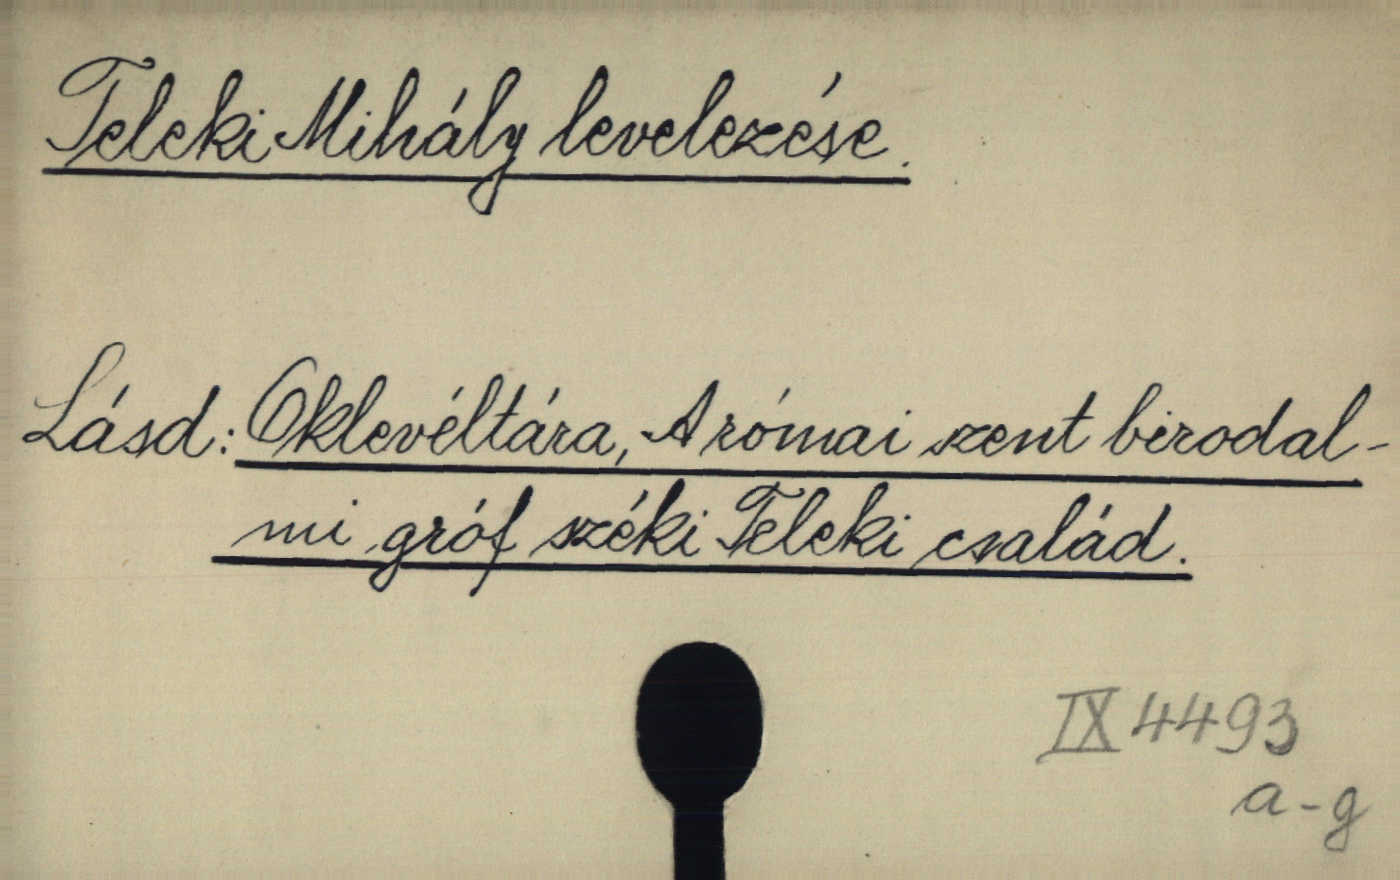 Teleki Mihály levelezése.
Lásd: Oklevéltára, A római szent birodal-
mi gróf széki Teleki család.
IX 4493
a-g